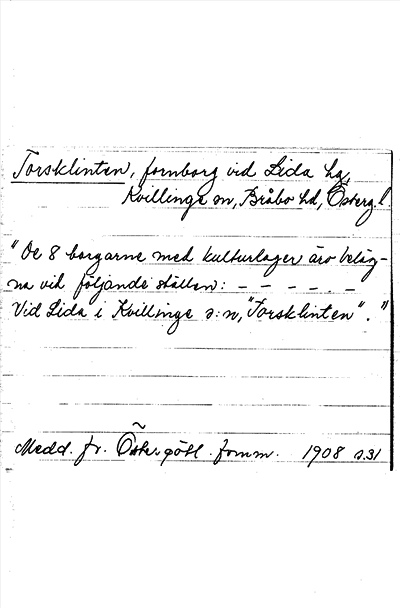 Torsklinten, fornborg vid Lida hg,
Kvillinge sn, Bråbo hd, Östergl.
"De 8 borgarne med kulturlager äro beläg-
na vid följande ställen: - - - - -
Vid Lida i Kvillinge s:n, "Torsklinten"."
Medd. fr. Östergötl. fornm. 1908 s.31